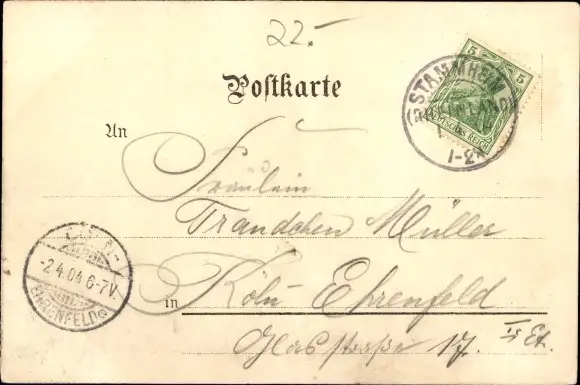 22.-
Postkarte
5 5
STAMMHEIM
(RHEINLAND)
1-2N
An
Fräulein
Trandchen Müller
-2.4.04 6-7V.
EHRENFELD
in Köln Ehrenfeld
Glasstraße 17. II Et.